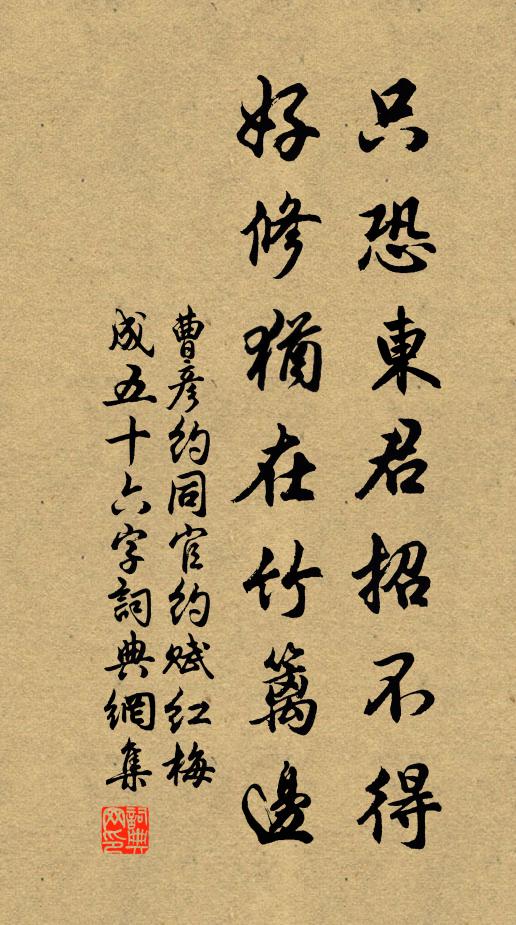 只恐東君招不得
好修猶在竹籬邊
曹彦約同官約赋红梅
成五十六字詞典網集
詞典网印